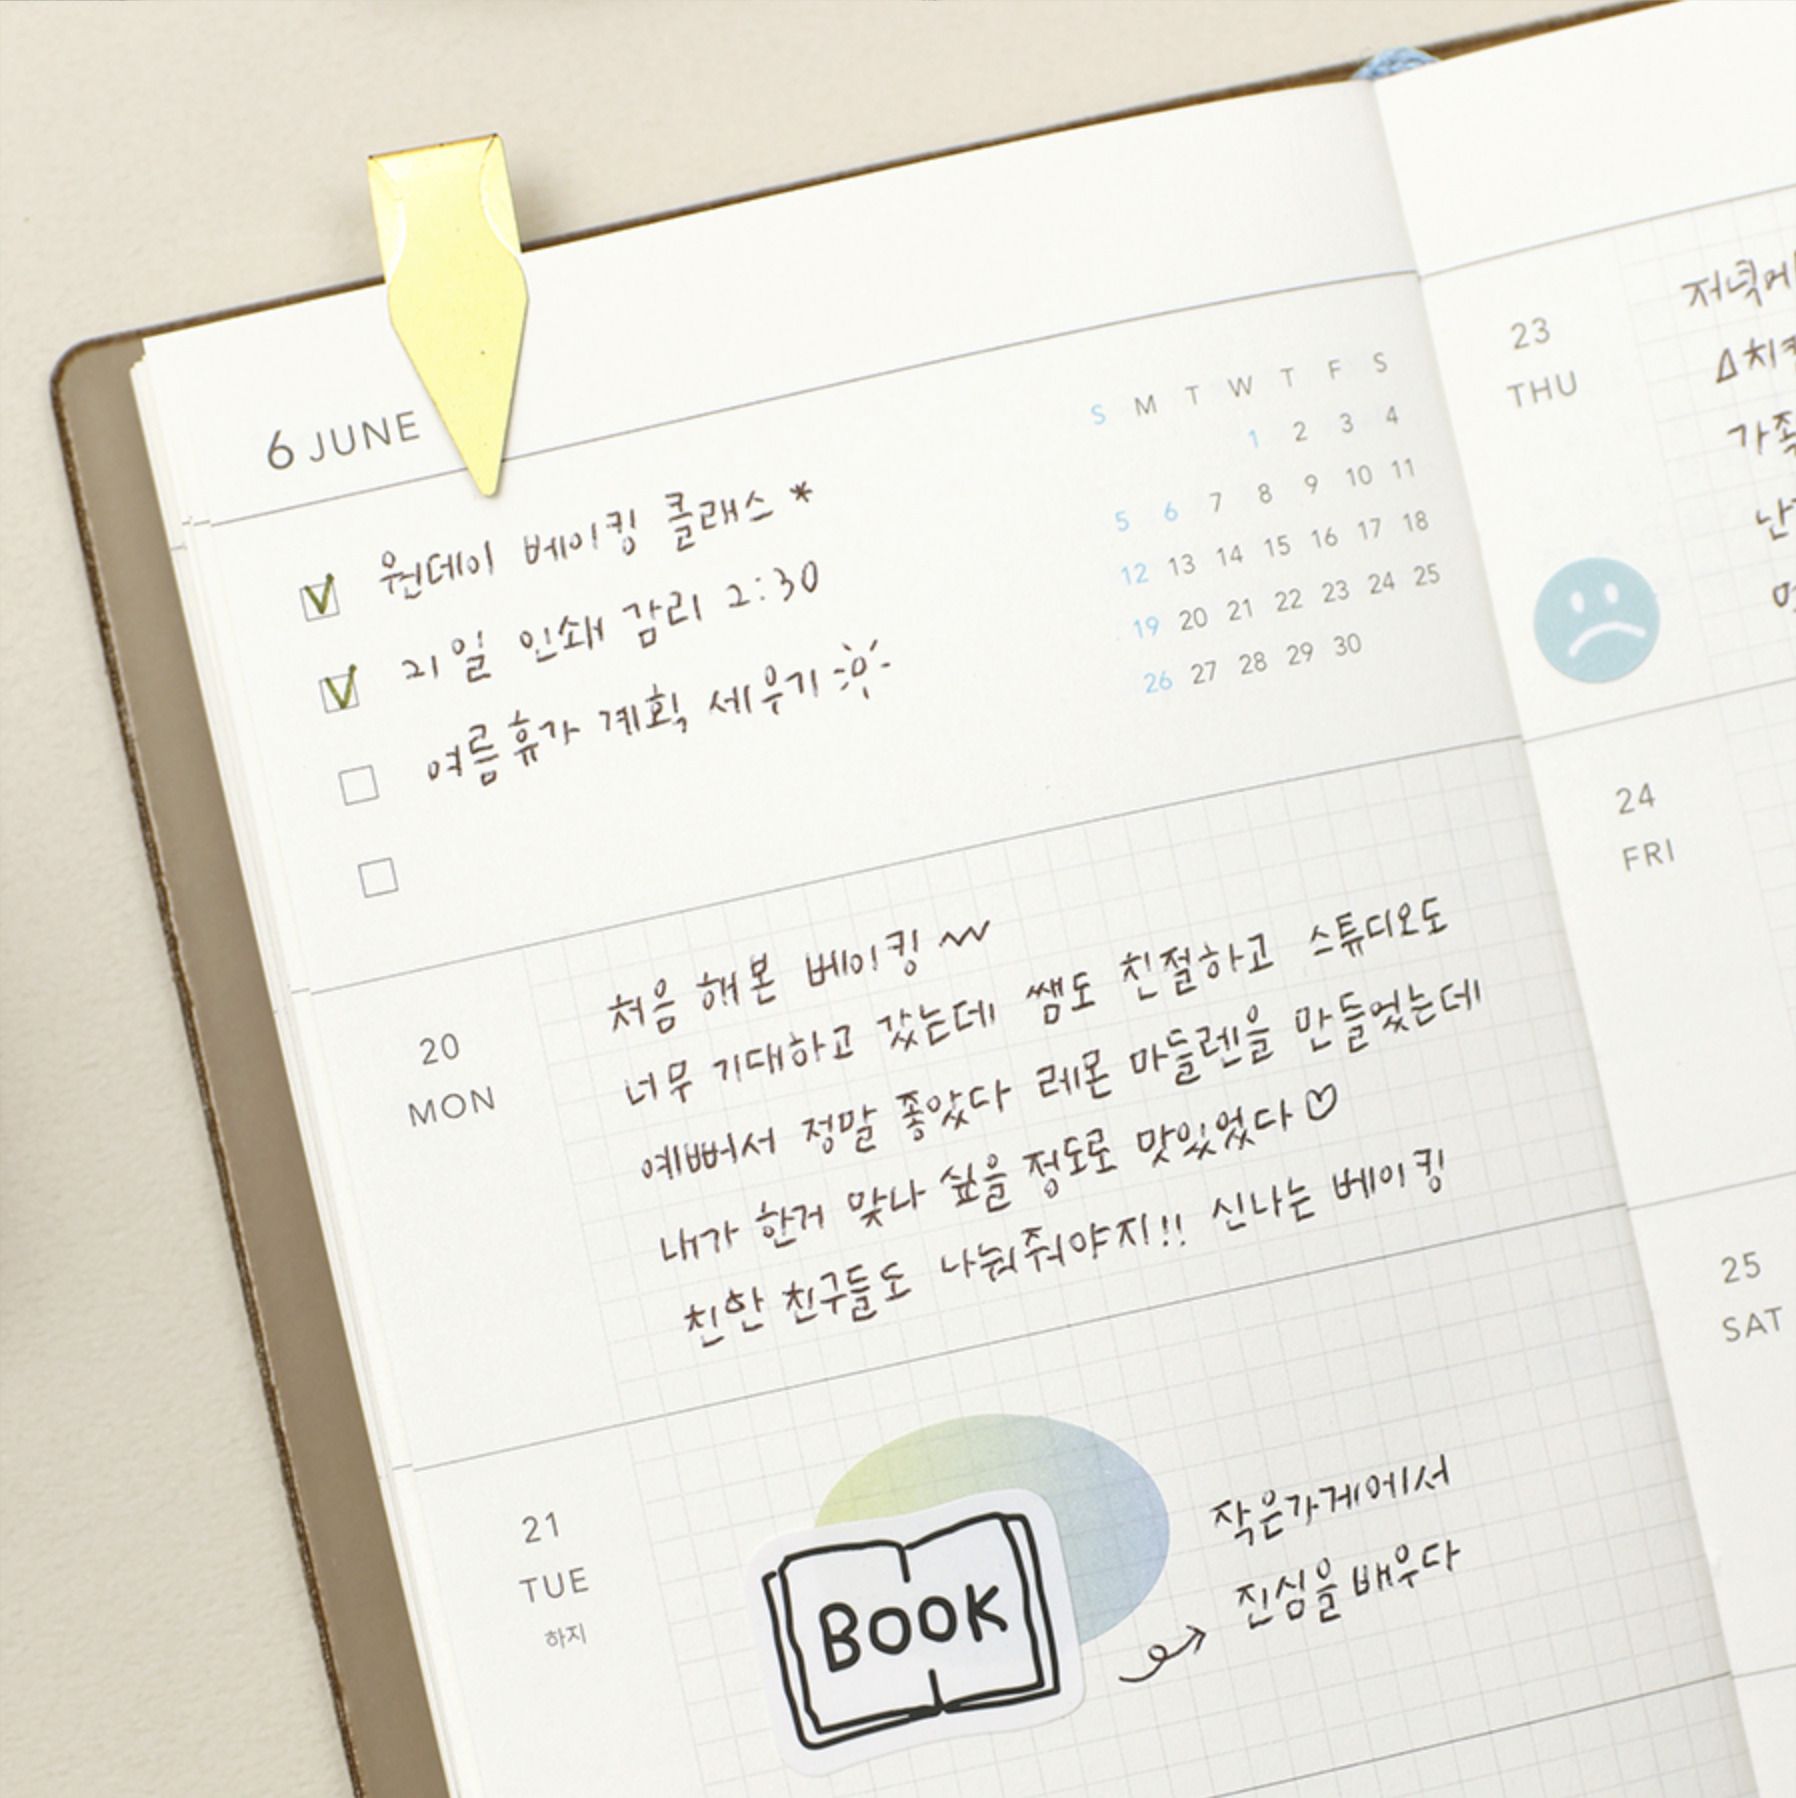 6 JUNE
원데이 베이킹 클래스 *
21일 인쇄 감리 2:30
여름휴가 계획 세우기
S M T W T F S
1 2 3 4
5 6 7 8 9 10 11
12 13 14 15 16 17 18
19 20 21 22 23 24 25
26 27 28 29 30
20
MON
처음 해본 베이킹
너무 기대하고 갔는데 쌤도 친절하고 스튜디오도
예뻐서 정말 좋았다 레몬 마들렌을 만들었는데
내가 한거 맞나 싶을 정도로 맛있었다♡
친한 친구들도 나눠줘야지!! 신나는 베이킹
21
TUE
하지
BOOK
작은가게에서
진심을 배우다
23
THU
24
FRI
25
SAT